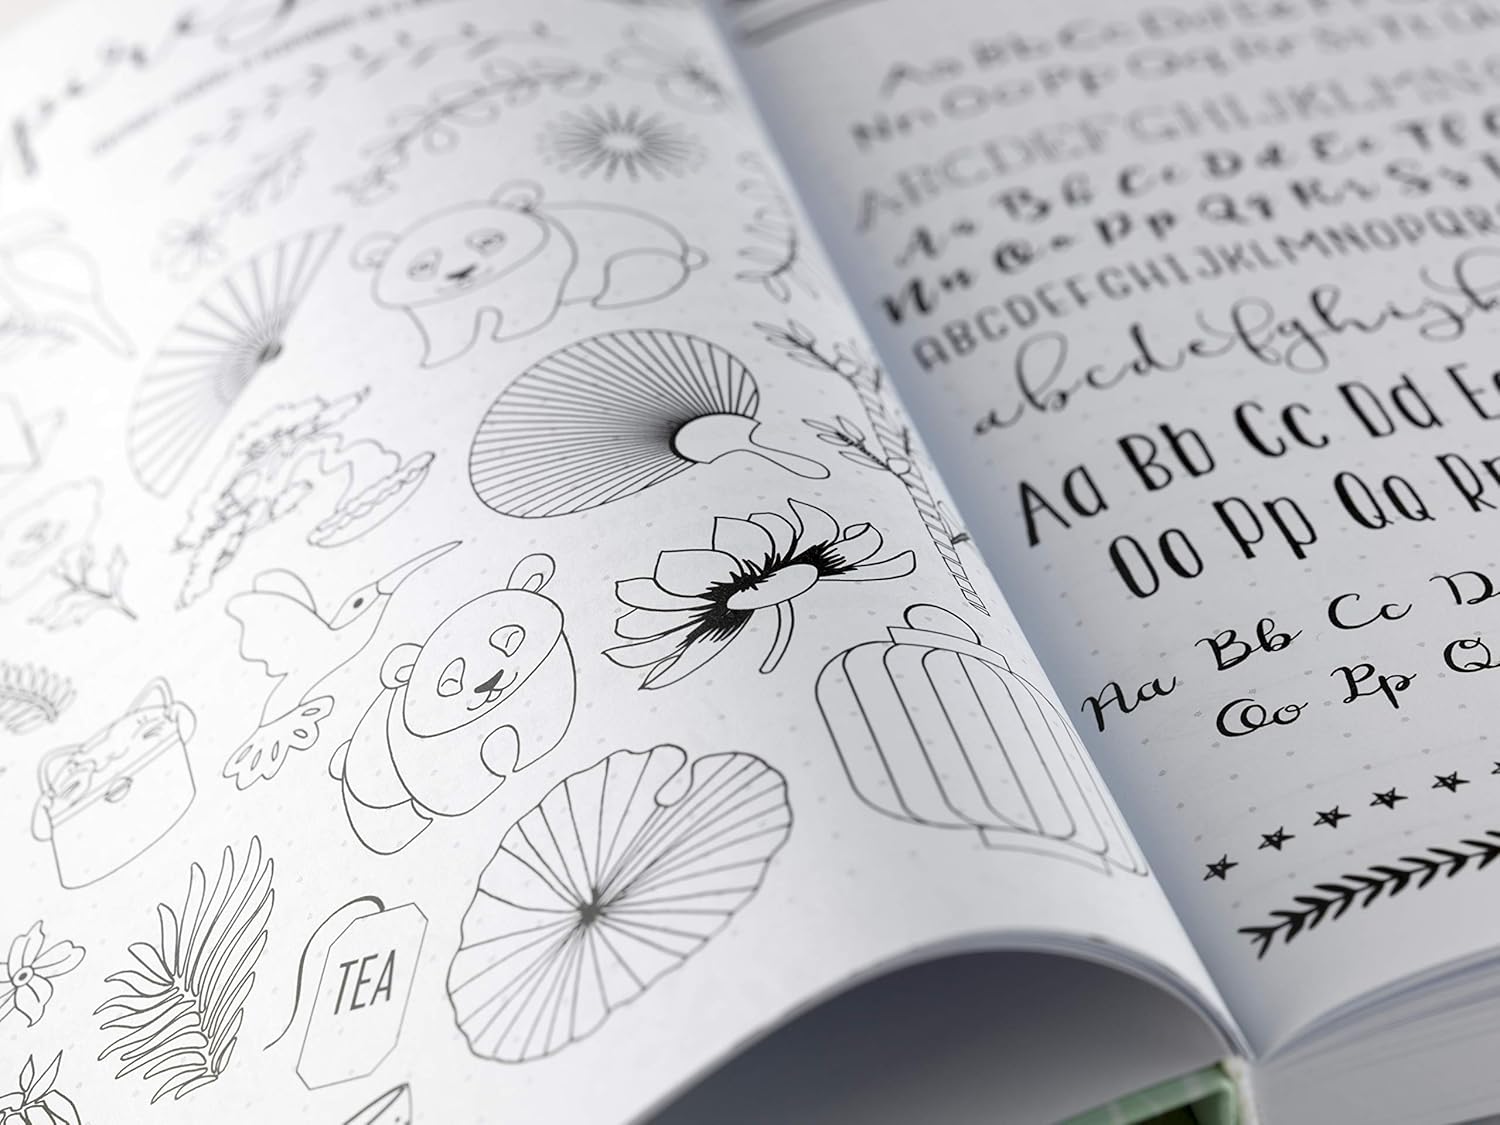 TEA
Aa Bb Cc Dd Ee F
Nn Oo Pp Qq Rr Ss Tt Uu
ABCDEFGHIJKLMNO
Aa Bb Cc Dd Ee Ff
Nn Oo Pp Qq Rr Ss T
ABCDEFGHIJKLMNOPQR
abcdefghijk
Aa Bb Cc Dd Ee
Oo Pp Qq Rr
Aa Bb Cc D
Oo Pp Q